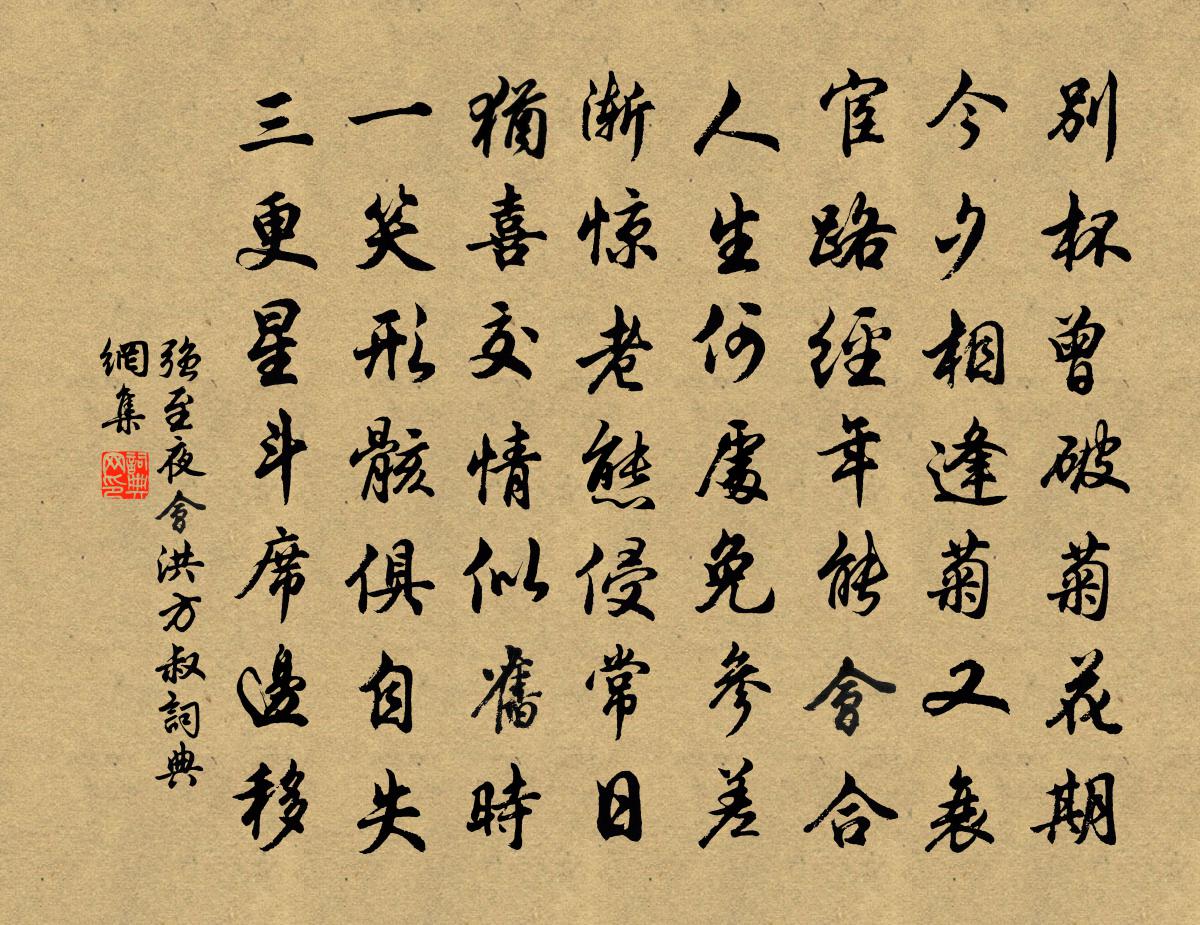 別杯曾破菊花期
今夕相逢菊又衰
宦路經年能會合
人生何處免參差
漸惊老態侵常日
猶喜交情似舊時
一笑形骸俱自失
三更星斗席邊移
強至夜會洪方叔詞典
網集
詞典
网印